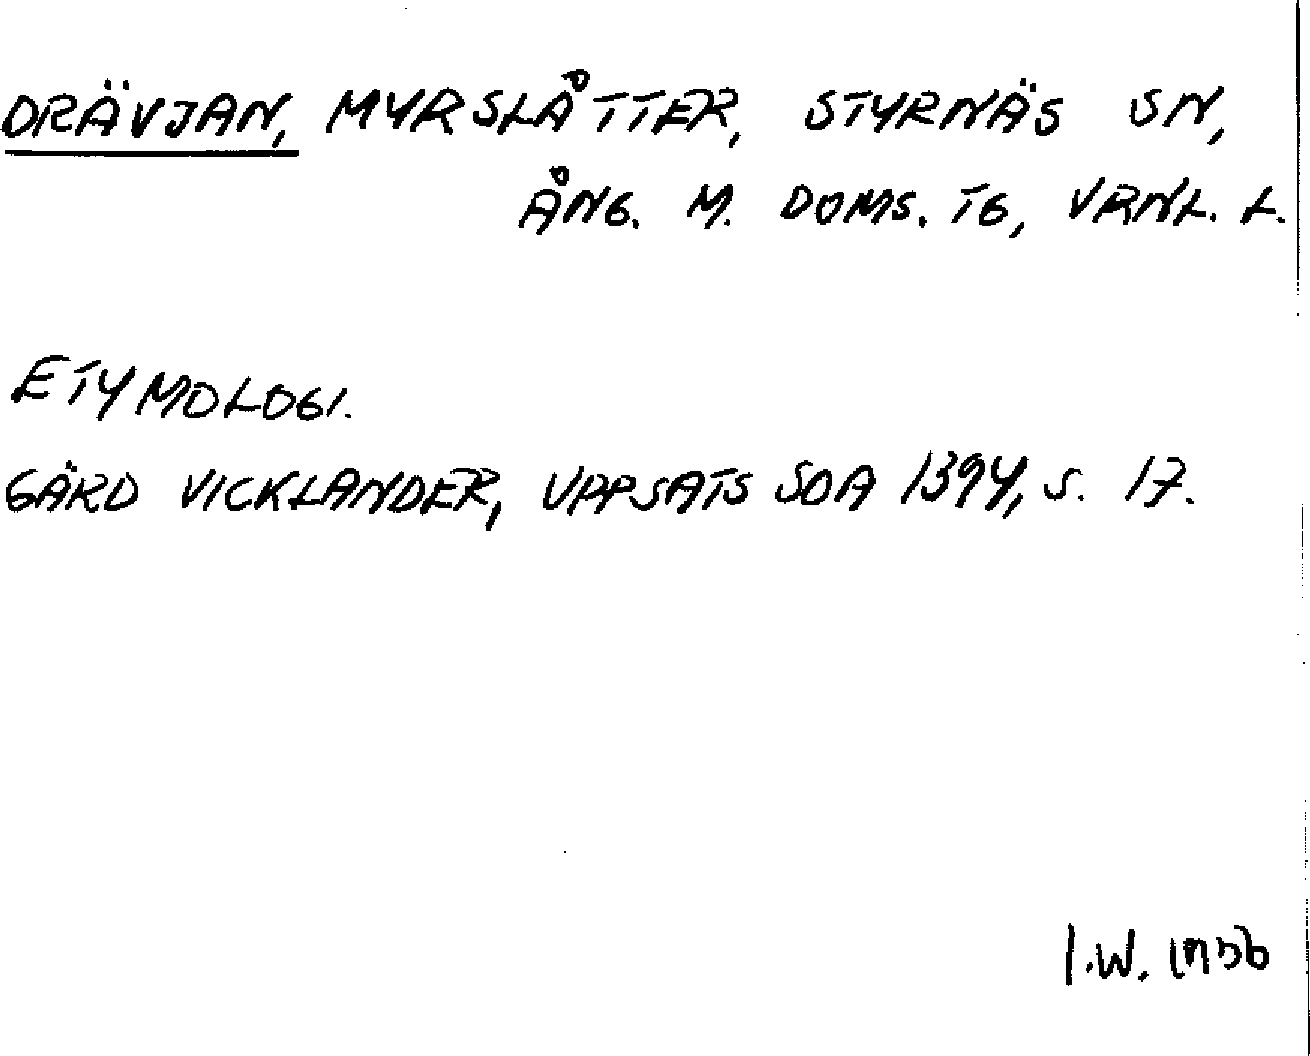 DRÄVJAN, MYRSLÅTTER, STYRNÄS SN,
ÅNG. M. DOMS. TG, VRNL. L.
ETYMOLOGI.
GÄRD VICKLANDER, UPPSATS SOA 1394, S. 17.
I.W.